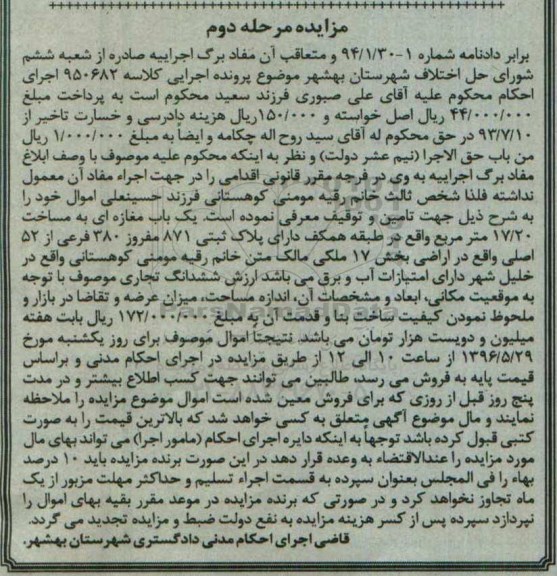 مزایده مرحله دوم
برابر دادنامه شماره ۱-۹۴/۱/۳۰ و متعاقب آن مفاد برگ اجراییه صادره از شعبه ششم
شورای حل اختلاف شهرستان بهشهر موضوع پرونده اجرایی کلاسه ۹۵۰۶۸۲ اجرای
احکام محکوم علیه آقای علی صبوری فرزند سعید محکوم است به پرداخت مبلغ
۴۴/۰۰۰/۰۰۰ ریال اصل خواسته و ۱۵۰/۰۰۰ریال هزینه دادرسی و خسارت تاخیر از
۹۳/۷/۱۰ در حق محکوم له آقای سید روح اله چکامه و ایضاً به مبلغ ۱/۰۰۰/۰۰۰ ریال
من باب حق الاجرا (نیم عشر دولت) و نظر به اینکه محکوم علیه موصوف با وصف ابلاغ
مفاد برگ اجراییه به وی در فرجه مقرر قانونی اقدامی را در جهت اجراء مفاد آن معمول
نداشته فلذا شخص ثالث خانم رقیه مومنی کوهستانی فرزند حسینعلی اموال خود را
به شرح ذیل جهت تامین و توقیف معرفی نموده است. یک باب مغازه ای به مساحت
۱۷/۲۰ متر مربع واقع در طبقه همکف دارای پلاک ثبتی ۸۷۱ مفروز ۳۸۰ فرعی از ۵۲
اصلی واقع در اراضی بخش ۱۷ ملکی مالک متن خانم رقیه مومنی کوهستانی واقع در
خلیل شهر دارای امتیازات آب و برق می باشد ارزش ششدانگ تجاری موصوف با توجه
به موقعیت مکانی، ابعاد و مشخصات آن، اندازه مساحت، میزان عرضه و تقاضا در بازار و
ملحوظ نمودن کیفیت ساخت بنا و قدمت آن به مبلغ ۱۷۲/۰۰۰/۰۰۰ ریال بابت هفته
میلیون و دویست هزار تومان می باشد. نتیجتاً اموال موصوف برای روز یکشنبه مورخ
۱۳۹۶/۵/۲۹ از ساعت ۱۰ الی ۱۲ از طریق مزایده در اجرای احکام مدنی و براساس
قیمت پایه به فروش می رسد، طالبین می توانند جهت کسب اطلاع بیشتر و در مدت
پنج روز قبل از روزی که برای فروش معین شده است اموال موضوع مزایده را ملاحظه
نمایند و مال موضوع آگهی متعلق به کسی خواهد شد که بالاترین قیمت را به صورت
کتبی قبول کرده باشد توجهاً به اینکه دایره اجرای احکام (مامور اجرا) می تواند بهای مال
مورد مزایده را عندالاقتضاء به وعده قرار دهد در این صورت برنده مزایده باید ۱۰ درصد
بهاء را فی المجلس بعنوان سپرده به قسمت اجراء تسلیم و حداکثر مهلت مزبور از یک
ماه تجاوز نخواهد کرد و در صورتی که برنده مزایده در موعد مقرر بقیه بهای اموال را
نپردازد سپرده پس از کسر هزینه مزایده به نفع دولت ضبط و مزایده تجدید می گردد.
قاضی اجرای احکام مدنی دادگستری شهرستان بهشهر.